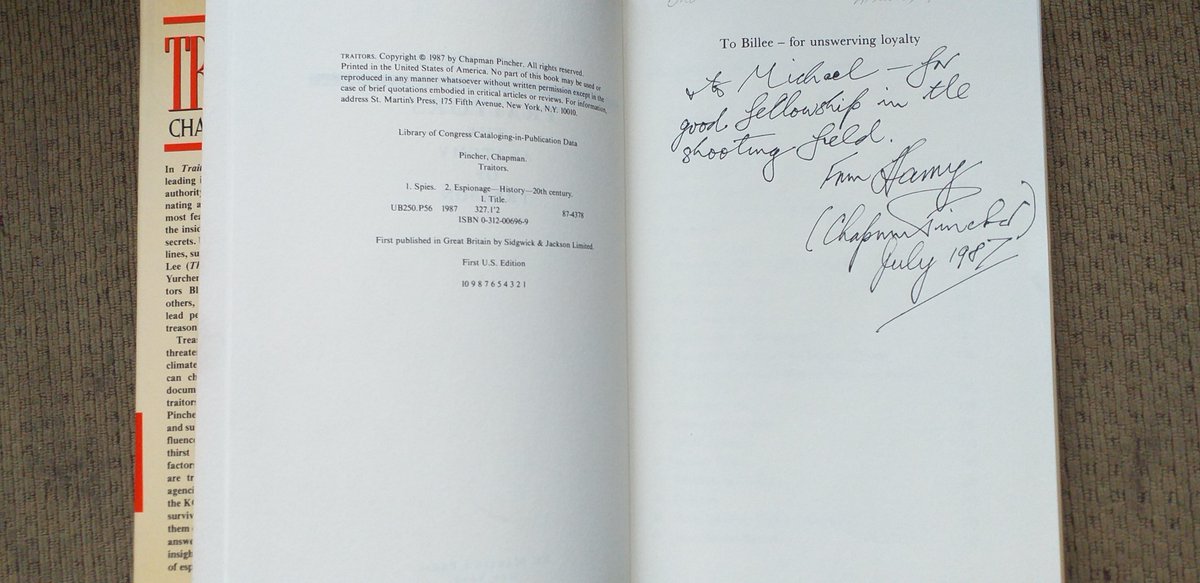 TR
CHA
In Trai
leading i
authority
nating a
most fea
the insid
secrets.
lines, su
Lee (Th
Yurcher
tors Bl
others,
lead pe
treason
Trea
threate
climate
can ch
docum
traitors
Pinche
and su
fluence
thirst
factor
are tr
agenci
the KG
surviv
them
answe
insigh
of esp
TRAITORS. Copyright © 1987 by Chapman Pincher. All rights reserved.
Printed in the United States of America. No part of this book may be used or
reproduced in any manner whatsoever without written permission except in the
case of brief quotations embodied in critical articles or reviews. For information,
address St. Martin's Press, 175 Fifth Avenue, New York, N.Y. 10010.
Library of Congress Cataloging-in-Publication Data
Pincher, Chapman.
Traitors.
1. Spies. 2. Espionage—History—20th century.
I. Title.
UB250.P56 1987 327.1'2 87-4378
ISBN 0-312-00696-9
First published in Great Britain by Sidgwick & Jackson Limited.
First U.S. Edition
10 9 8 7 6 5 4 3 2 1
To Billee – for unswerving loyalty
& to Michael – for
good fellowship in the
shooting field.
From Harry
(Chapman Pincher)
July 1987